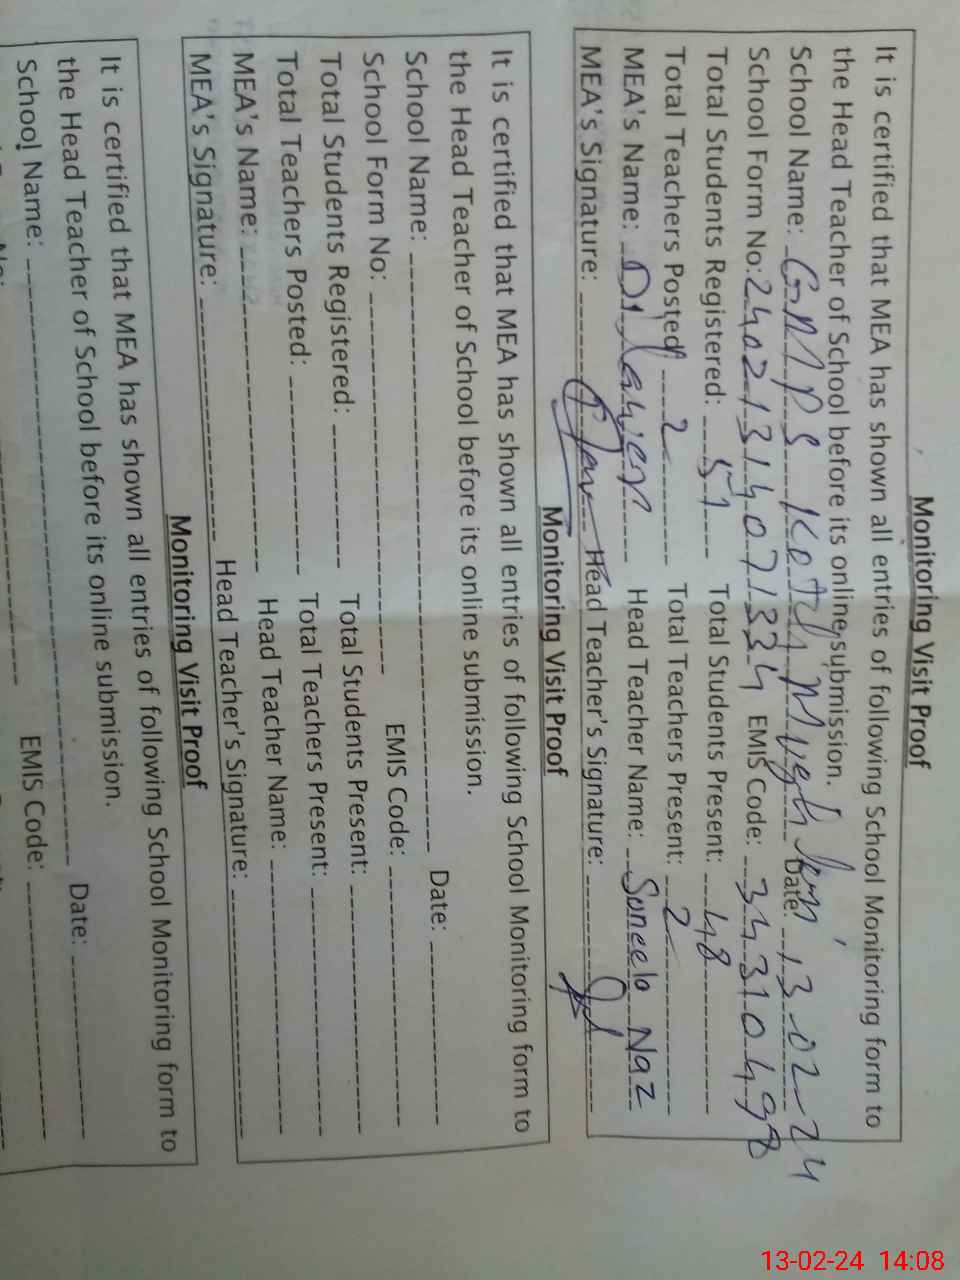 Monitoring Visit Proof
It is certified that MEA has shown all entries of following School Monitoring form to
the Head Teacher of School before its online submission.
School Name: GMPS Date: 13-02-24
School Form No: 24021314071334 EMIS Code: 34310498
Total Students Registered: 51 Total Students Present: 48
Total Teachers Posted: 2 Total Teachers Present: 2
MEA's Name: Dilawer Head Teacher Name: Soneela Naz
MEA's Signature: Head Teacher's Signature:
Monitoring Visit Proof
It is certified that MEA has shown all entries of following School Monitoring form to
the Head Teacher of School before its online submission.
School Name: Date:
School Form No: EMIS Code:
Total Students Registered: Total Students Present:
Total Teachers Posted: Total Teachers Present:
MEA's Name: Head Teacher Name:
MEA's Signature: Head Teacher's Signature:
Monitoring Visit Proof
It is certified that MEA has shown all entries of following School Monitoring form to
the Head Teacher of School before its online submission.
School Name: Date:
EMIS Code:
13-02-24 14:08